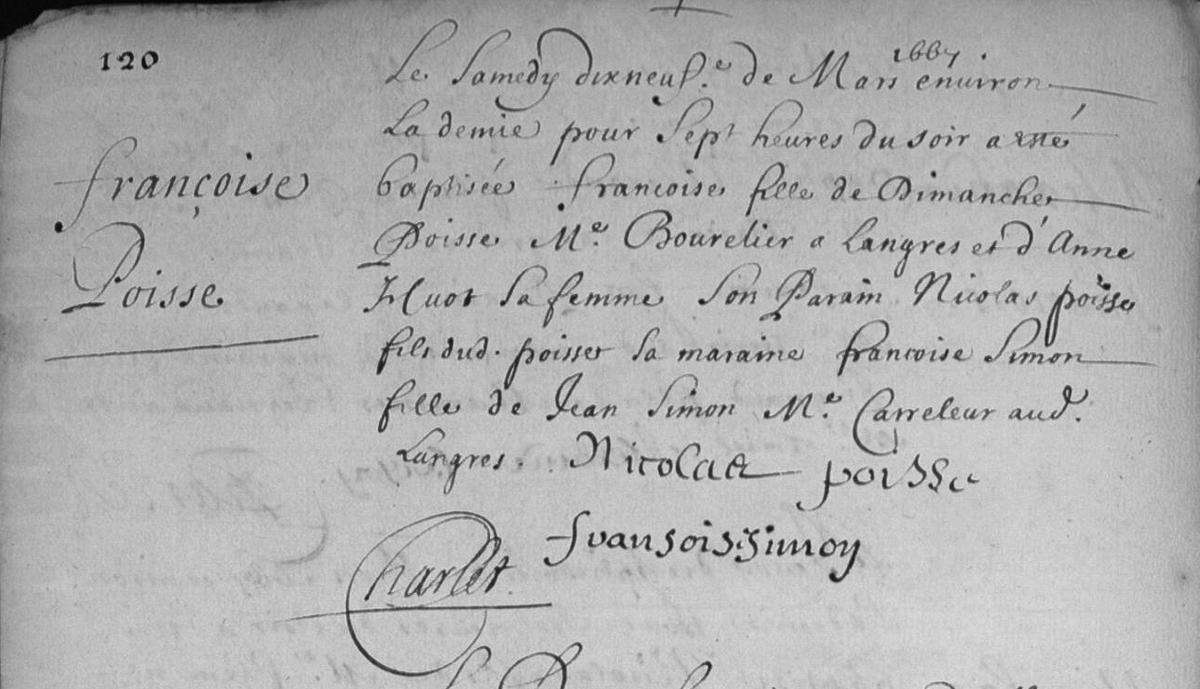 120
1667
Le Samedy dixneuf.e de Mars environ
La demie pour Sept heures du soir a esté
françoise
baptisée francoise fille de Dimanche
Poisse
Poisse M.e Bourelier a Langres et d'Anne
Huot sa femme son Parain Nicolas poisse
fils dud. poisse sa maraine francoise Simon
fille de Jean Simon M.e Carreleur aud.
Langres. Nicolas poisse
fransois simon
Charlet